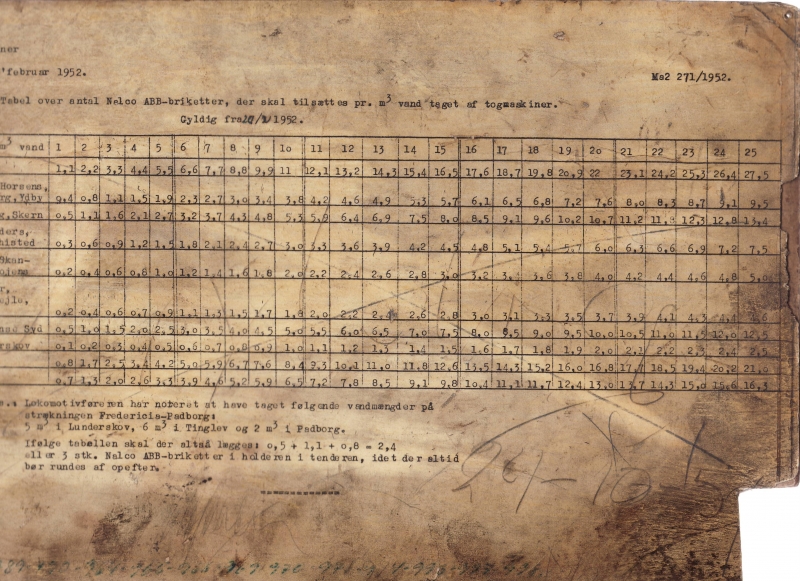 ner
februar 1952.
Ms2 271/1952.
Tabel over antal Nalco ABB-briketter, der skal tilsættes pr. m³ vand taget af togmaskiner.
Gyldig fra /1952.
m³ vand 1 2 3 4 5 6 7 8 9 10 11 12 13 14 15 16 17 18 19 20 21 22 23 24 25
1,1 2,2 3,3 4,4 5,5 6,6 7,7 8,8 9,9 11 12,1 13,2 14,3 15,4 16,5 17,6 18,7 19,8 20,9 22 23,1 24,2 25,3 26,4 27,5
Horsens,
rg, Ydby 0,4 0,8 1,1 1,5 1,9 2,3 2,7 3,0 3,4 3,8 4,2 4,6 4,9 5,3 5,7 6,1 6,5 6,8 7,2 7,6 8,0 8,3 8,7 9,1 9,5
g, Skern 0,5 1,1 1,6 2,1 2,7 3,2 3,7 4,3 4,8 5,3 5,9 6,4 6,9 7,5 8,0 8,5 9,1 9,6 10,2 10,7 11,2 11,8 12,3 12,8 13,4
ders,
histed 0,3 0,6 0,9 1,2 1,5 1,8 2,1 2,4 2,7 3,0 3,3 3,6 3,9 4,2 4,5 4,8 5,1 5,4 5,7 6,0 6,3 6,6 6,9 7,2 7,5
Skan-
0,2 0,4 0,6 0,8 1,0 1,2 1,4 1,6 1,8 2,0 2,2 2,4 2,6 2,8 3,0 3,2 3,4 3,6 3,8 4,0 4,2 4,4 4,6 4,8 5,0
r,
ejle,
0,2 0,4 0,6 0,7 0,9 1,1 1,3 1,5 1,7 1,8 2,0 2,2 2,4 2,6 2,8 3,0 3,1 3,3 3,5 3,7 3,9 4,1 4,3 4,4 4,6
nse Syd 0,5 1,0 1,5 2,0 2,5 3,0 3,5 4,0 4,5 5,0 5,5 6,0 6,5 7,0 7,5 8,0 8,5 9,0 9,5 10,0 10,5 11,0 11,5 12,0 12,5
rskov 0,1 0,2 0,3 0,4 0,5 0,6 0,7 0,8 0,9 1,0 1,1 1,2 1,3 1,4 1,5 1,6 1,7 1,8 1,9 2,0 2,1 2,2 2,3 2,4 2,5
0,8 1,7 2,5 3,4 4,2 5,0 5,9 6,7 7,6 8,4 9,3 10,1 11,0 11,8 12,6 13,5 14,3 15,2 16,0 16,8 17,7 18,5 19,4 20,2 21,0
0,7 1,3 2,0 2,6 3,3 3,9 4,6 5,2 5,9 6,5 7,2 7,8 8,5 9,1 9,8 10,4 11,1 11,7 12,4 13,0 13,7 14,3 15,0 15,6 16,3
s.: Lokomotivføreren har noteret at have taget følgende vandmængder på
strækningen Fredericia-Padborg:
5 m³ i Lunderskov, 6 m³ i Tinglev og 2 m³ i Padborg.
Ifølge tabellen skal der altså lægges: 0,5 + 1,1 + 0,8 = 2,4
eller 3 stk. Nalco ABB-briketter i holderen i tenderen, idet der altid
bør rundes af opefter.